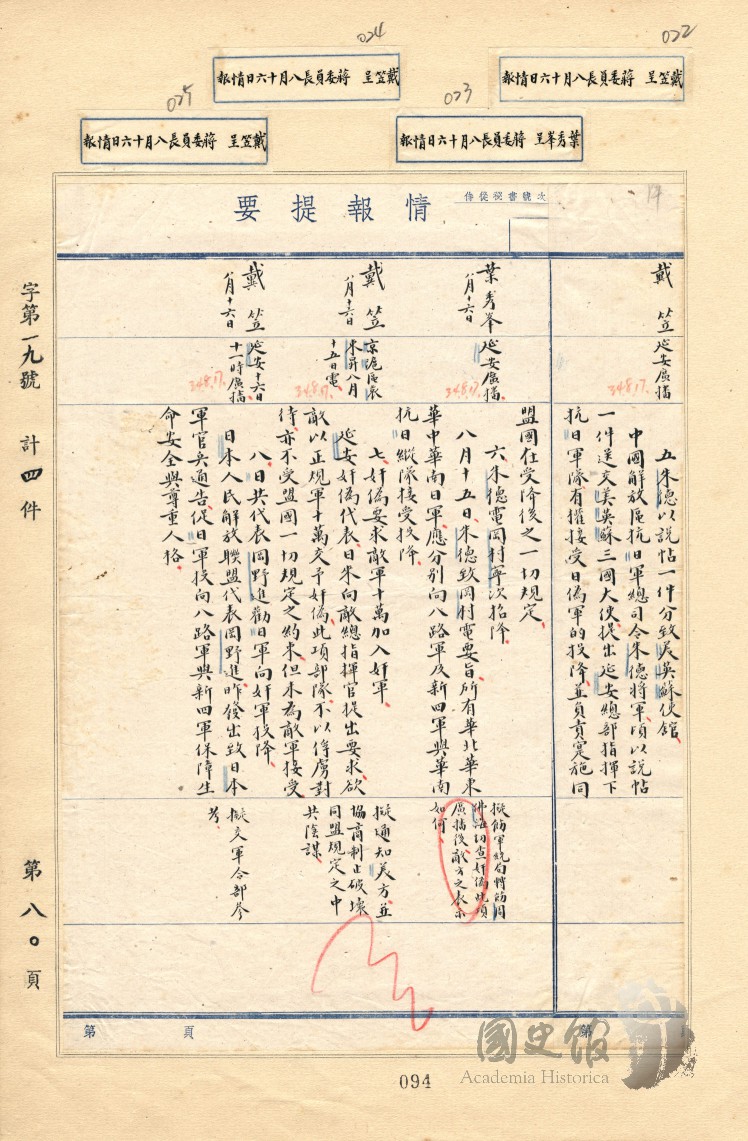 024
022
戴笠呈 蔣委員長八月十六日情報
戴笠呈 蔣委員長八月十六日情報
025
023
戴笠呈 蔣委員長八月十六日情報
葉秀峯呈 蔣委員長八月十六日情報
情報提要
侍從秘書號次
14
戴笠
延安廣播
34.8.17.
五、朱德以說帖一件分致美英蘇使館
中國解放區抗日軍總司令朱德將軍頃以說帖
一件送交美英蘇三國大使、提出延安總部指揮下
抗日軍隊有權接受日偽軍的投降、並負責實施同
盟國在受降後之一切規定、
葉秀峯
八月十六
延安廣播
34.8.17.
六、朱德電岡村寧次招降、
八月十五日、朱德致岡村電要旨、所有華北華東
華中華南日軍、應分別向八路軍及新四軍與華南
抗日縱隊接受投降、
擬飭軍統局轉飭周
佛海切查奸偽此項
廣播後、敵方之表示
如何、
戴笠
八月十六日
京滬區來
朱昇八月
十五日電
34.8.17.
七、奸偽要求敵軍十萬加入奸軍、
延安奸偽代表、日來向敵總指揮官提出要求、欲
敵以正規軍十萬交予奸偽、此項部隊、不以俘虜對
待、亦不受盟國一切規定之約束、但未為敵軍接受
擬通知美方、並
協商制止破壞
同盟規定之中
共陰謀、
戴笠
八月十六日
延安十六日
十一時廣播
34.8.17.
八、日共代表岡野進勸日軍向奸軍投降、
日本人民解放聯盟代表岡野進昨發出致日本
軍官兵通告、促日軍投向八路軍與新四軍、保障生
命安全與尊重人格、
擬交軍令部參
考、
字第一九號 計四件
第八〇頁
第 頁
第 頁
094
國史館
Academia Historica